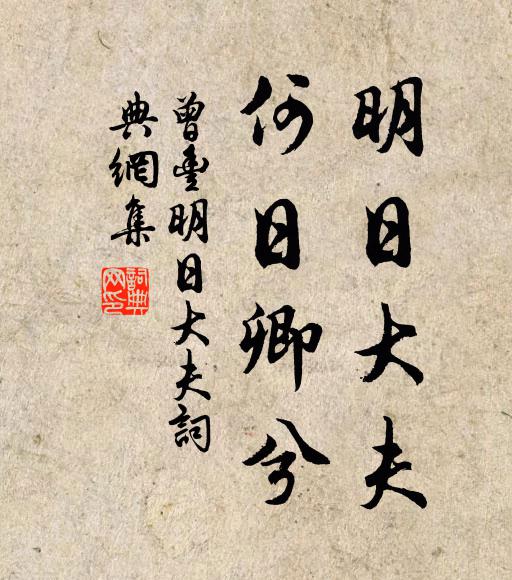 明日大夫
何日卿兮
曾豊明日大夫詞
典網集
詞典
网印